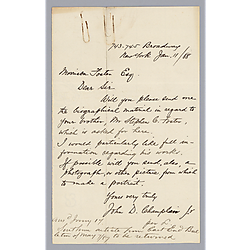 743-745 Broadway
New York Jan. 11/88
Morrison Foster Esq
Dear Sir
Will you please send me
the biographical material in regard to
your brother, Mr Stephen C. Foster,
which is asked for here.
I would particularly like full in-
formation regarding his works.
If possible will you send, also, a
photograph, or other picture from which
to made a portrait.
Yours very truly
John D. Champlin Jr
17
article from East End Bul
letin of to be returned